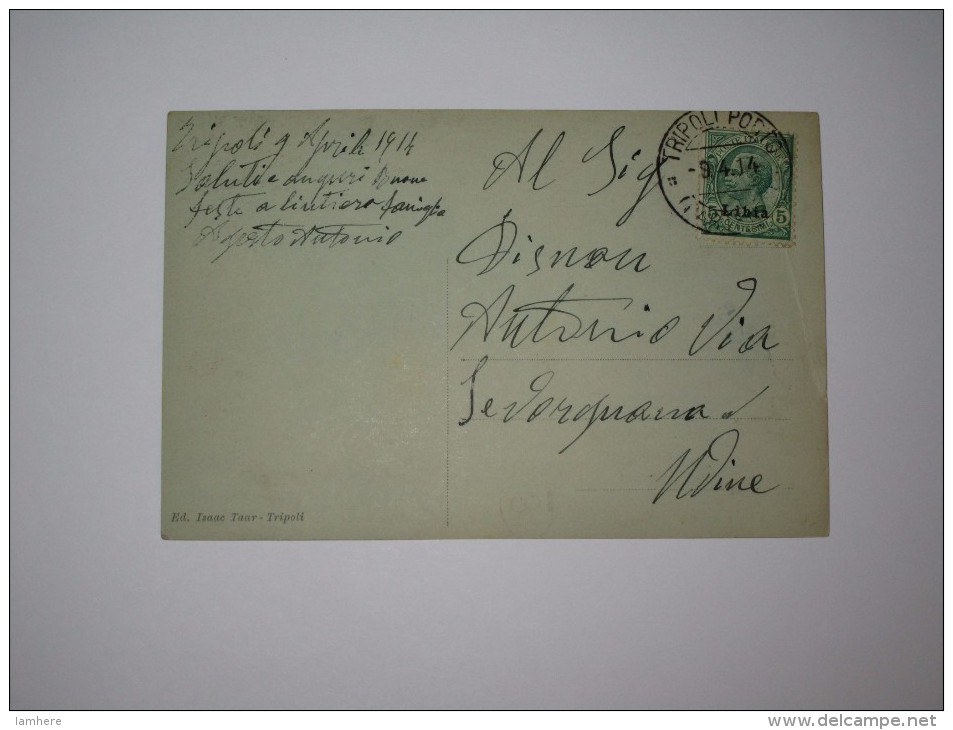 Tripoli 9 Aprile 1914
Saluti e auguri Buone
feste a lintiera famiglia
Antonio
Al Sig
Antonio Via
Udine
TRIPOLI PORTO
-9.4.14
Libia
5 5
CENTESIMI
Ed. Isaac Taar - Tripoli
lamhere
www.delcampe.net